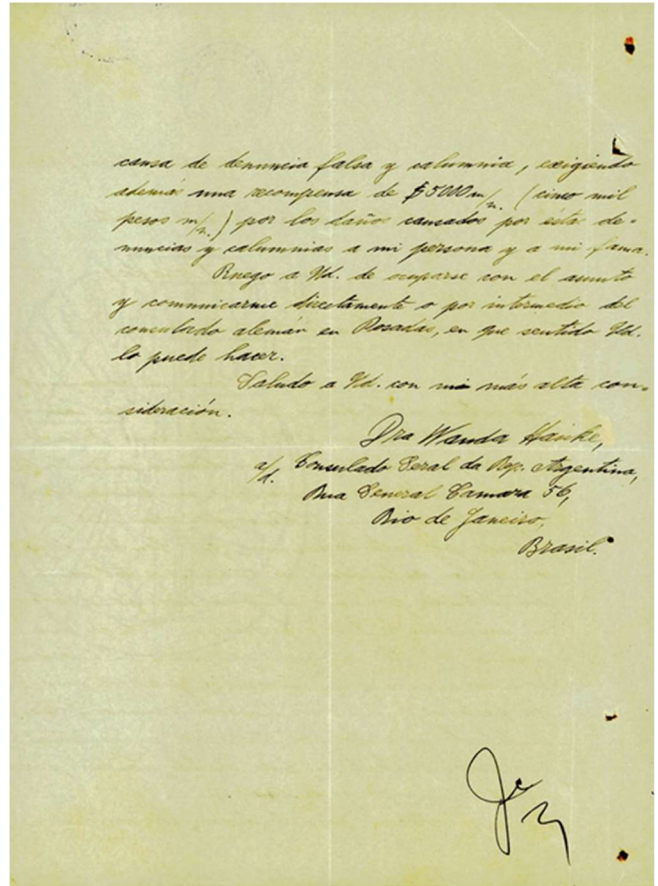 causa de denuncia falsa y calumnia, exigiendo
además una recompensa de $5000 m/n. (cinco mil
pesos m/n.) por los daños causados por estas de-
nuncias y calumnias a mi persona y a mi fama.
Ruego a Ud. de ocuparse con el asunto
y communicarme directamente o por intermedio del
consulado alemán en Posadas, en que sentido Ud.
lo puede hacer.
Saludo a Ud. con mi más alta con-
sideración.
Dra Wanda Hanke,
a/d. Consulado Geral da Rep. Argentina,
Rua General Camara 56,
Rio de Janeiro,
Brasil.